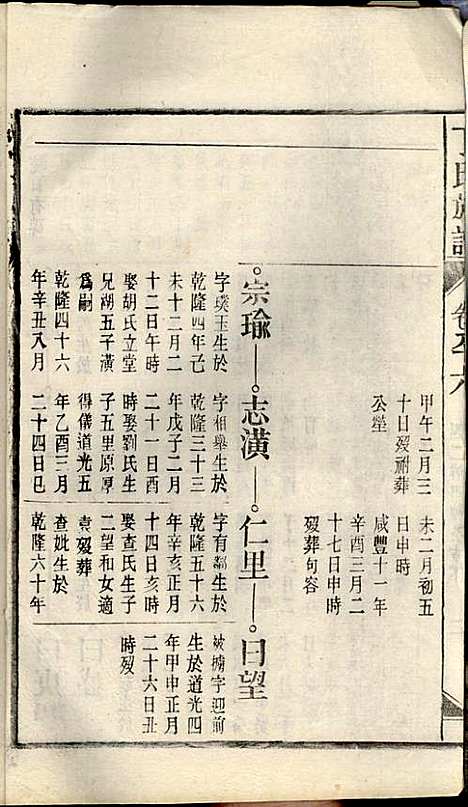 氏族譜
卷之六
甲午二月三
十日歿祔葬
公塋
未二月初五
日申時
咸豐十一年
辛酉三月二
十七日申時
歿葬句容
宗瑜 志潢 仁里 日望
字璞玉生於
乾隆四年己
未十二月二
十二日午時
娶胡氏立堂
兄湖五子潢
爲嗣
乾隆四十六
年辛丑八月
字相舉生於
乾隆三十三
年戊子二月
二十一日酉
時娶劉氏生
子五里原厚
得儀道光五
年乙酉三月
二十四日巳
字有鄰生於
乾隆五十六
年辛亥正月
十四日亥時
娶查氏生子
二望和女適
袁歿葬
查妣生於
乾隆六十年
被擄字迎前
生於道光四
年甲申正月
二十六日丑
時歿